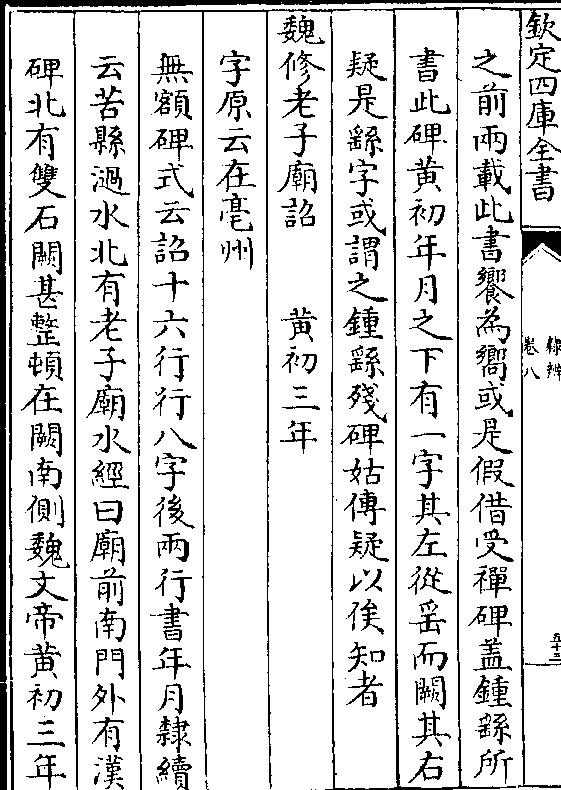 欽定四庫全書
隸辨
卷八
五十三
之前兩載此書饗為嚮或是假借受禪碑蓋鍾繇所
書此碑黄初年月之下有一字其左從䍃而闕其右
疑是繇字或謂之鍾繇殘碑姑傳疑以俟知者
魏修老子廟詔　黄初三年
字原云在亳州
無額碑式云詔十六行行八字後兩行書年月隸續
云苦縣渦水北有老子廟水經曰廟前南門外有漢
碑北有雙石闕甚整頓在闕南側魏文帝黄初三年